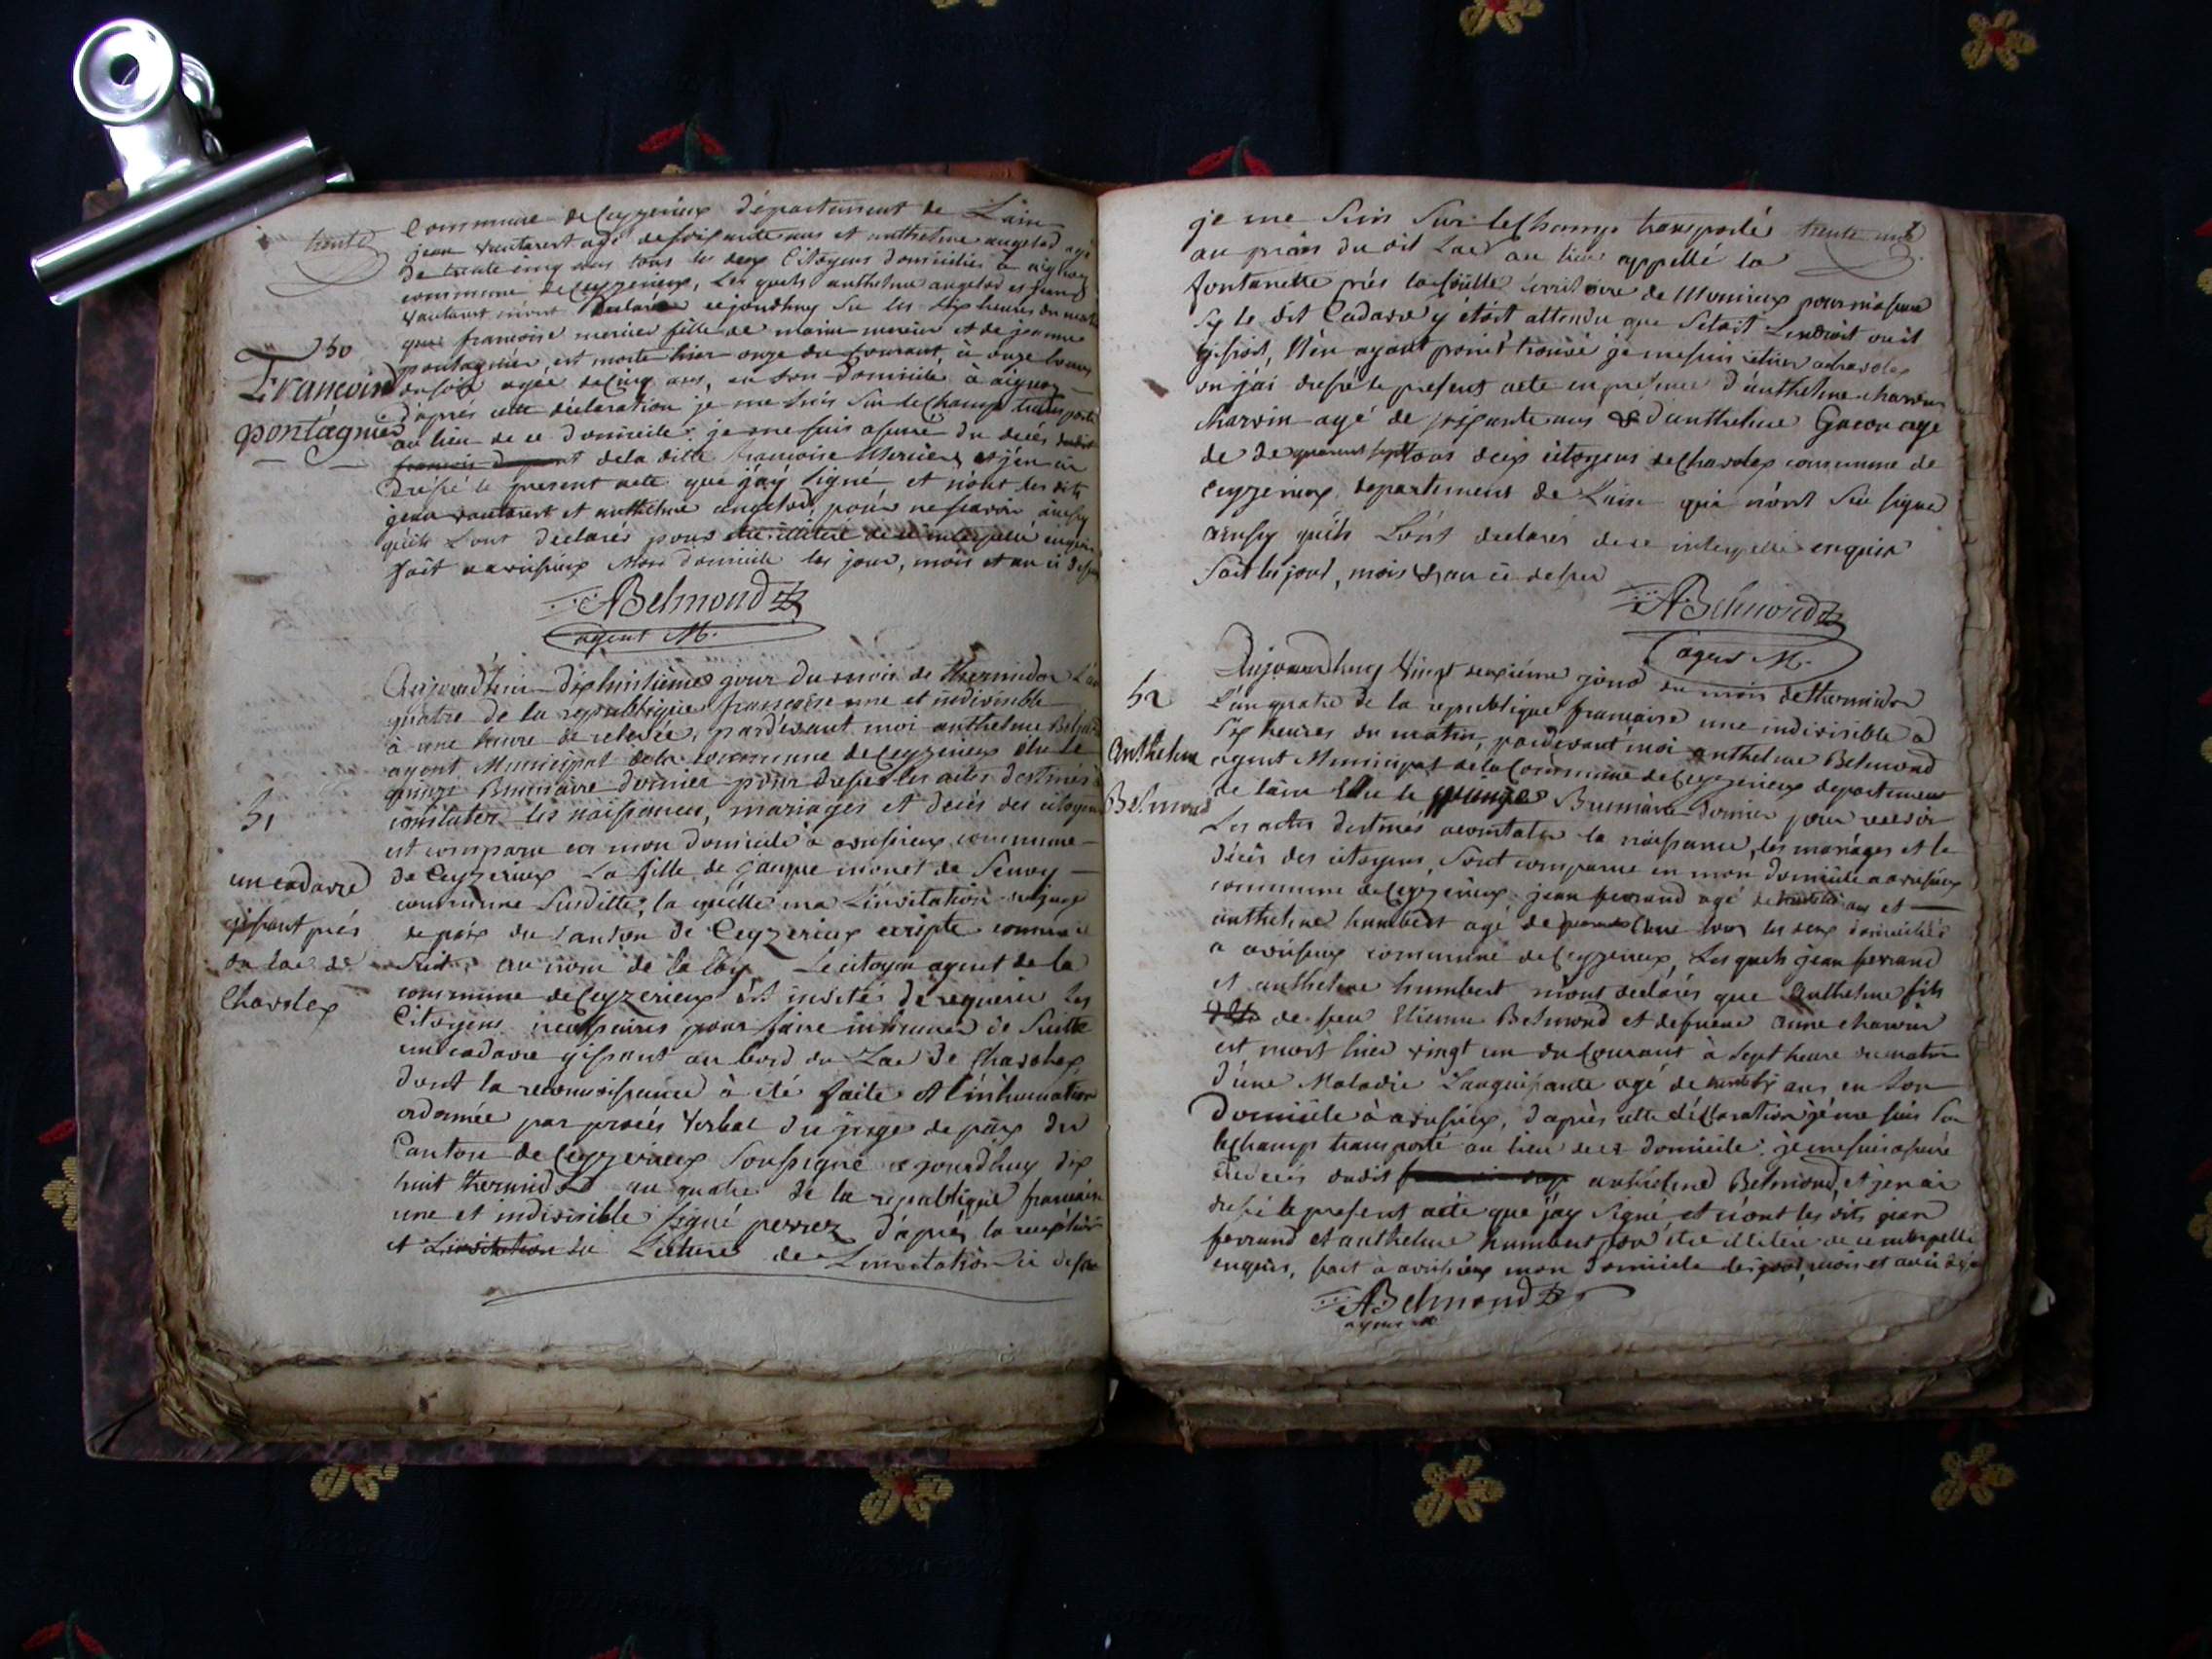 trente
Commune de Ceyzerieux département de Lain
jean vautaret agé de soisante ans et anthelme angelod agé
de trente cinq ans tous les deux Citoyens domiciliés à aignoz
commune de Ceyzerieux, Les quels anthelme angelod et jean
vautaret m'ont declaré cejourdhuy sur les dix heures du matin
que francoise mercier fille de mercier et de jeanne
pontagnier, est morte hier onze du Courant, à onze heures
du soir agée de cinq ans, en son domicile à aignoz
d'après cette déclaration je me suis sur le Champ transporté
au lieu de ce domicile: je me suis assuré du decés
de la ditte francoise Mercier, et j'en ai
dressé le present acte que j'ay signé, et n'ont les dits
jean vautaret et anthelme angelod, pour ne savoir ainsy
qu'ils L'ont declarés de ce interpelé enquis
fait a avrissieux Mon domicile les jour, mois et an ci dessus
ABelmond
agent M.
50
Francoise
pontagnier
Aujourd'hui dixhuitième jour du mois de thermidor L'an
quatre de la republique francoise une et indivisible
à une heure de relevée, pardevant moi anthelme Belmond
agent Municipal de la commune de Ceyzerieux élu le
quinze Brumaire dernier pour dresser les actes destinés à
constater les naissances, mariages et décés des citoyens
est comparu en mon domicile à avrissieux commune
de Ceyzerieux La fille de jacque monet de Senoy
commune Susditte, la quelle ma L'invitation du juge
de paix du Canton de Ceyzerieux écripte comme il
suit, au nom de la Loy Le citoyen agent de la
commune de Ceyzerieux est invité de requerir les
Citoyens necessaires pour faire inhumer de Suitte
un cadavre gissant au bord du Lac de Charolex
dont la reconnoissance à été faite et l'inhumation
ordonnée par procés Verbal du juge de paix du
Canton de Ceyzerieux Soussigné cejourdhuy dix
huit thermidor an quatre de la republique francaise
une et indivisible signé perrez d'après la reception
et L'invitation la Lecture de L'invitation ci dessus
51
un cadavre
gissant prés
du lac de
Charolex
trente une
je me suis sur le Champ transporté
au prés du dit Lac au lieu appellé la
fontanette prés territoire de Momieux pour m'assurer
sy le dit Cadavre y étoit attendu que setoit L'endroit ou il
gissoit, N'en ayant point trouvé je me suis retiré a charolex
ou j'ai dressé le present acte en presence d'anthelme charvin
charvin agé de soisante ans & d'anthelme Gacon agé
de de quarent sept tous deux citoyens de Charolex commune de
Ceyzerieux departement de Lain qui n'ont Su signer
ainsy qu'ils L'ont declarés de ce interpellé enquis
fait les jour, mois & an ci dessus
ABelmond
agent M.
Aujourdhuy Vingt deuxiéme jour du mois de thermidor
L'an quatre de la republique francaise une indivisible à
Six heures du matin, pardevant moi anthelme Belmond
agent Municipal de la Commune de Ceyzerieux departement
de lain Elu le quinze Brumaire dernier pour recevoir
Les actes destinés a constater la naissance, les mariages et le
décés des citoyens, sont comparu en mon domicile a avrissieux
commune de Ceyzerieux jean ferrand agé de ans et
anthelme humbert agé de tous les deux domiciliés
a avrissieux commune de Ceyzerieux, Les quels jean ferrand
et anthelme humbert m'ont declarés que anthelme fils
de feu Etienne Belmond et de anne charvin
est mort hier vingt un du Courant à sept heure du matin
d'une Maladie Languissante agé de ans en son
domicile à avrissieux, d'après cette déclaration je me suis sur
le champ transporté au lieu de ce domicile: je me suis assuré
du decés dudit anthelme Belmond, et j'en ai
dressé le present acte que j'ay signé, et n'ont les dits jean
ferrand et anthelme humbert pour être illiteré de ce interpellé
enquis, fait a avrissieux mon domicile les jour, mois et an ci dessus
ABelmond
agent M
52
anthelme
Belmond